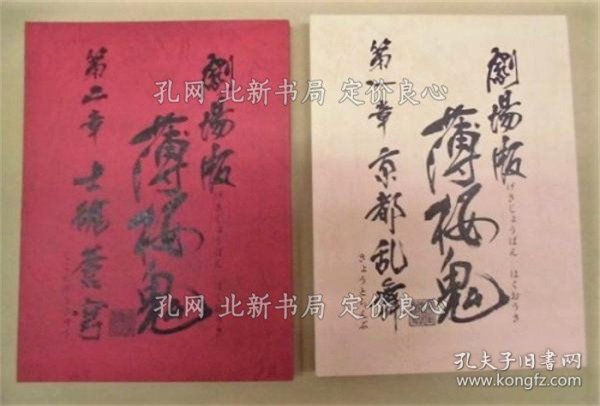 劇場版
薄桜鬼
第二章 士魂蒼穹
劇場版
げきじょうばん はくおうき
薄桜鬼
第一章 京都乱舞
きょうとらんぶ
孔网 北新书局 定价良心
孔网 北新书局 定价良心
孔网 北新书局 定价良心
孔网 北新书局 定价良心
孔夫子旧书网
www.kongfz.com